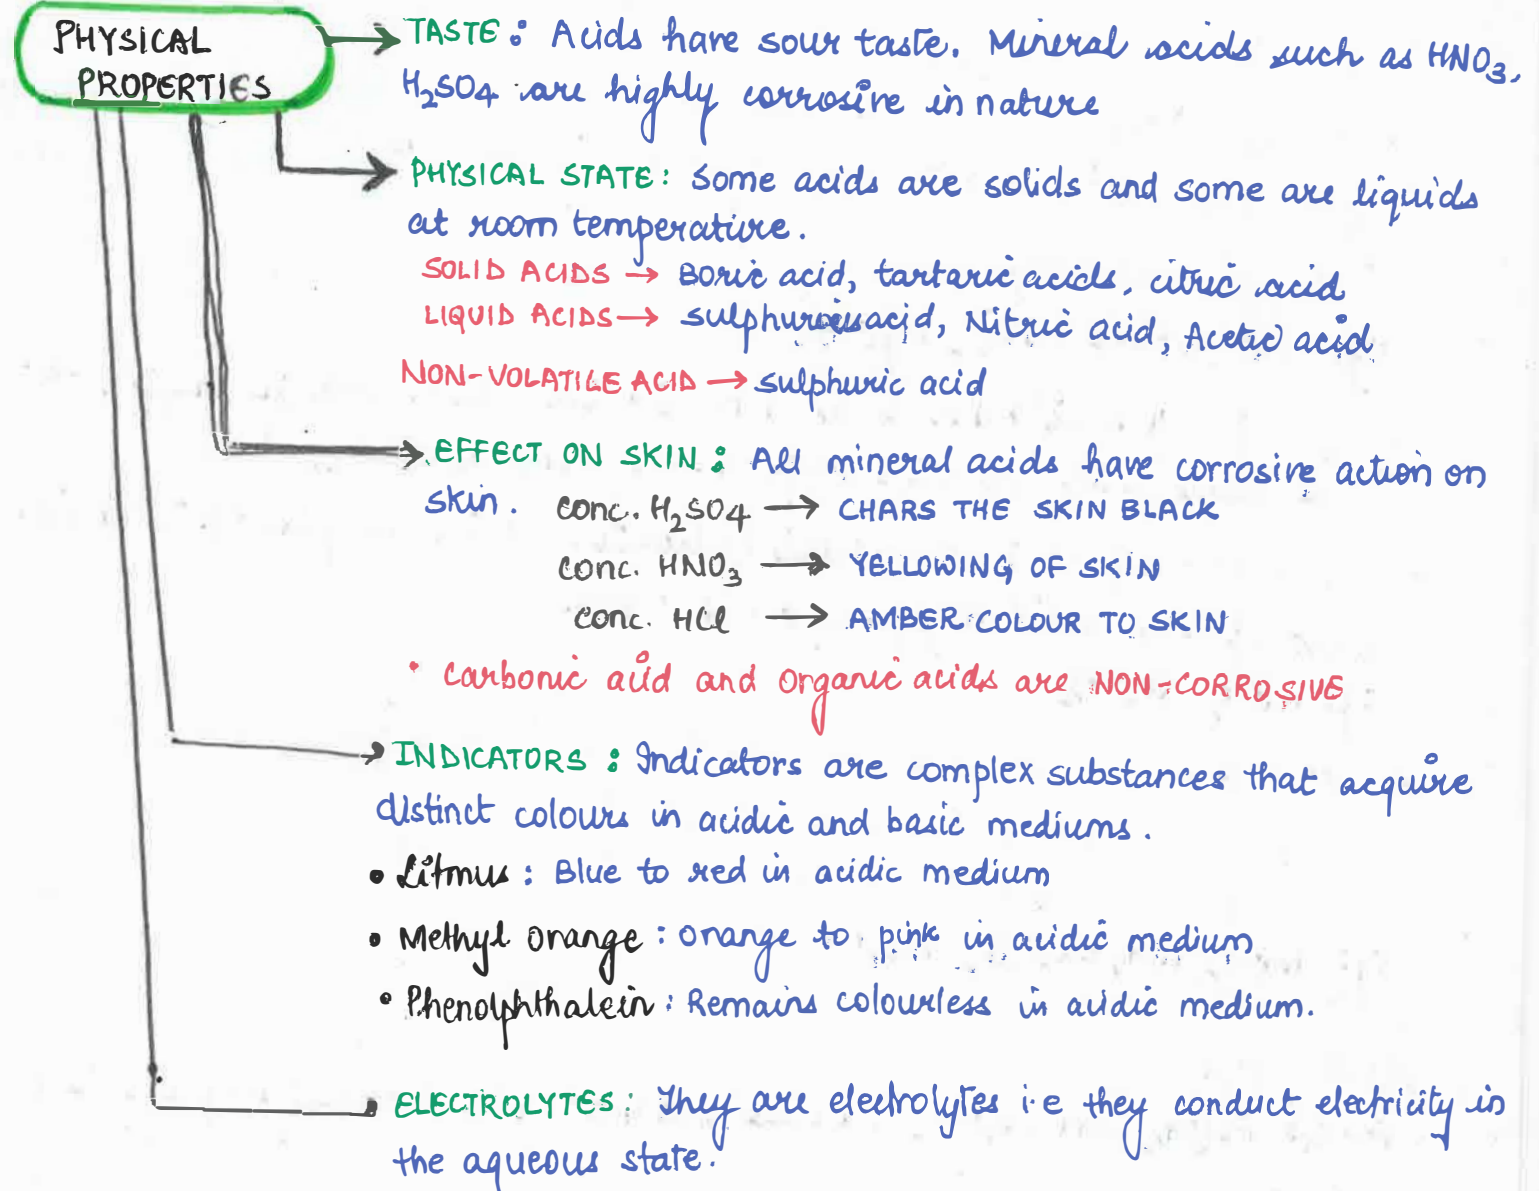 PHYSICAL
PROPERTIES
TASTE : Acids have sour taste. Mineral acids such as HNO₃,
H₂SO₄ are highly corrosive in nature
PHYSICAL STATE : Some acids are solids and some are liquids
at room temperature.
SOLID ACIDS → Boric acid, tartaric acids, citric acid
LIQUID ACIDS → sulphuric acid, Nitric acid, Acetic acid
NON-VOLATILE ACID → sulphuric acid
EFFECT ON SKIN : All mineral acids have corrosive action on
skin. conc. H₂SO₄ → CHARS THE SKIN BLACK
conc. HNO₃ → YELLOWING OF SKIN
conc. HCl → AMBER COLOUR TO SKIN
• Carbonic acid and organic acids are NON-CORROSIVE
INDICATORS : Indicators are complex substances that acquire
distinct colours in acidic and basic mediums.
• Litmus : Blue to red in acidic medium
• Methyl orange : orange to pink in acidic medium
• Phenolphthalein : Remains colourless in acidic medium.
ELECTROLYTES : They are electrolytes i.e they conduct electricity in
the aqueous state.